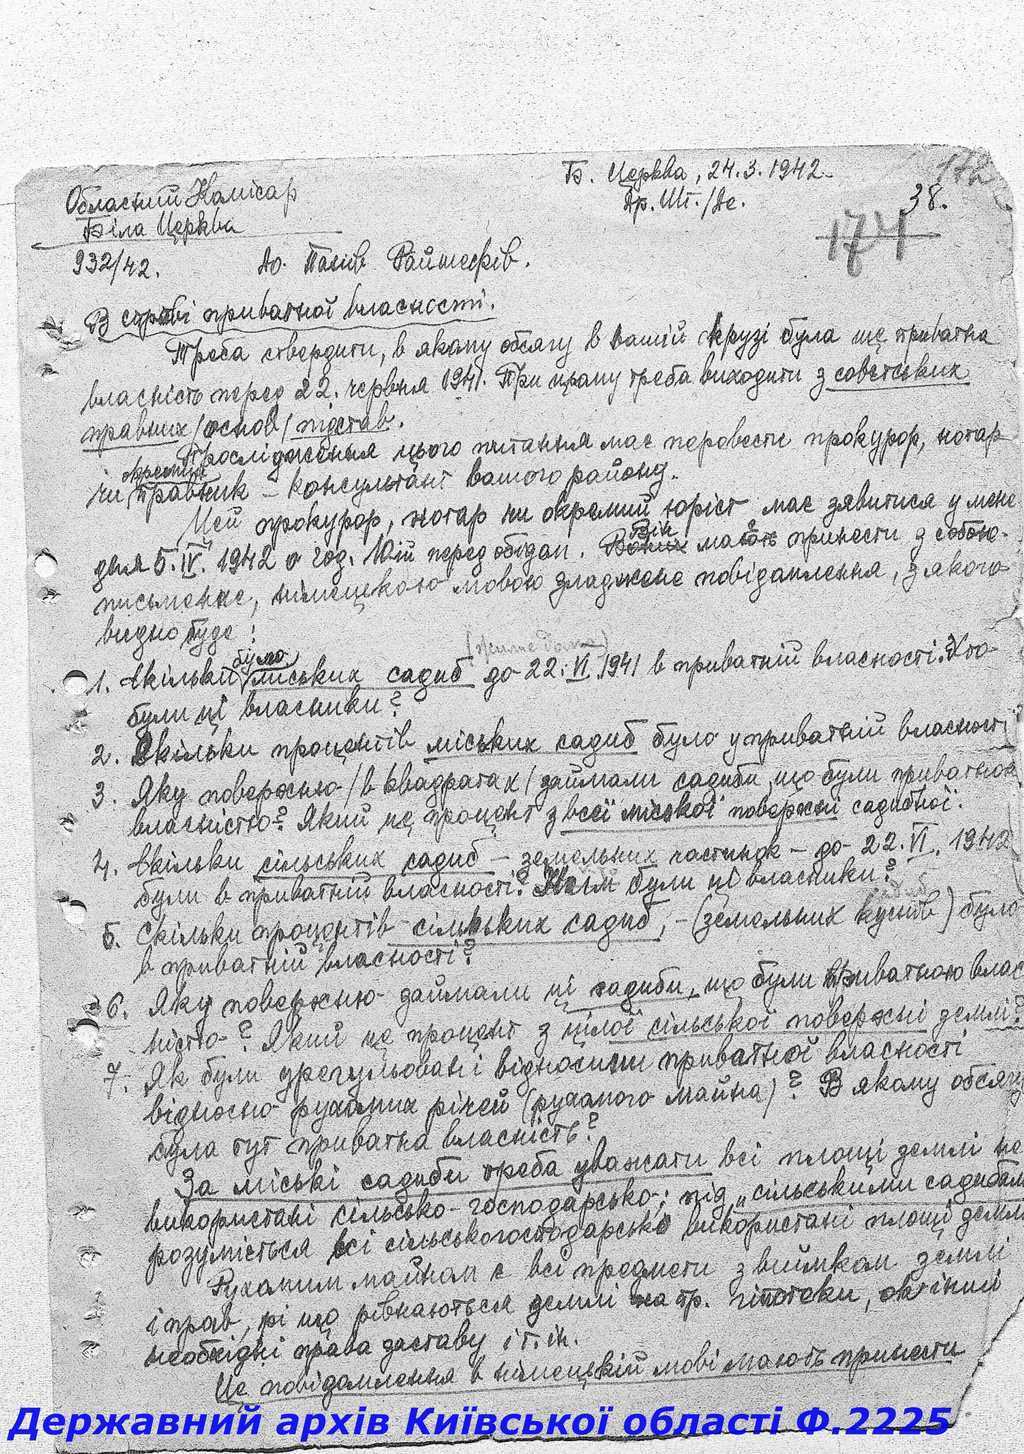 Б. Церква, 24.3.1942.
Обласний Комісар
Др. Шт./Де.
38.
172
Біла Церква
174
932/42.
До Панів Райшефів.
В справі приватної власності.
Треба ствердити, в якому обсягу в Вашій окрузі була ще приватна
власність перед 22. червня 1941. При цьому треба виходити з совєтських
правних /основ/ підстав.
Прослідження цього питання має перевести прокурор, нотар
окремий
чи правник – консультант вашого району.
Цей прокурор, нотар чи окремий юріст має зявитися у мене
Він
дня 5.IV. 1942 о год. 10ій перед обідом. мають принести з собою
письменне, німецькою мовою зладжене повідомлення, з якого
видно буде:
було
1. Скільки міських садиб до 22.VI.1941 в приватній власності. Хто
були ці власники?
2. Скільки процентів міських садиб було у приватній власності
3. Яку поверхню /в квадратах/ займали садиби, що були приватною
власністю? Який це процент з всеї міської поверхні садибної.
4. Скільки сільських садиб – земельних частинок – до 22.VI.1942
були в приватній власності? Ким були ці власники?
5. Скільки процентів сільських садиб, – (земельних кусків) було
в приватній власності?
36. Яку поверхню займали ці садиби, що були приватною влас
ністю? Який це процент з цілої сільської поверхні землі?
7. Як були урегульовані відносини приватної власності
відносно рухомих річей (рухомого майна)? В якому обсягу
була тут приватна власність?
За міські садиби треба уважати всі площі землі не
використані сільсько-господарсько; під "сільськими садибами
розуміється всі сільськогосподарсько використані площі землі
Рухомим майном є всі предмети з виїмком землі
і прав, рі що рівнаються землі на пр. гіпотеки, або інші
необхідні права заставу і т.ін.
Це повідомлення в німецькій мові мають принести
Державний архів Київської області Ф.2225